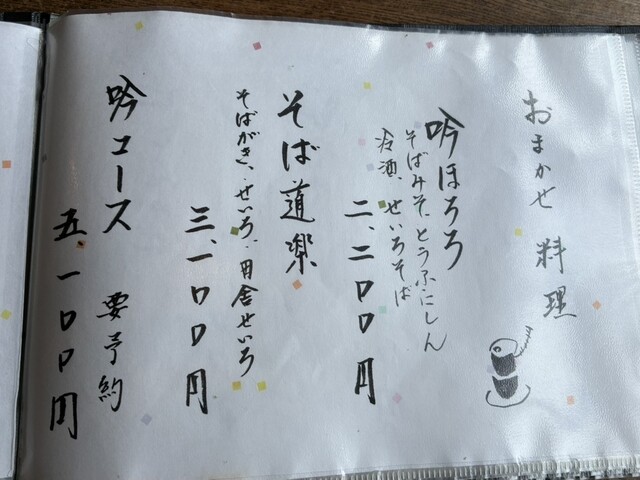 おまかせ料理
吟ほろろ
そばみそ、とうふ、にしん
冷酒、せいろそば
二、二〇〇円
そば道楽
そばがき、せいろ、田舎せいろ
三、一〇〇円
吟コース 要予約
五、一〇〇円